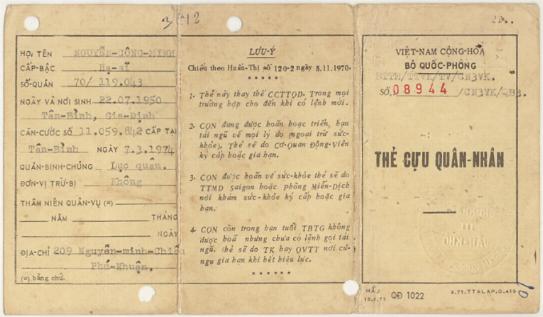 HỌ TÊN NGUYỄN-CÔNG-MINH
CẤP-BẬC Hạ-sĩ
SỐ-QUÂN 70/ 119.043
NGÀY VÀ NƠI SINH 22.07.1950
Tân-Bình, Gia-Định
CĂN-CƯỚC SỐ 11.059.842 CẤP TẠI
Tân-Bình NGÀY 7.3.1974
QUÂN-BINH-CHỦNG Lục quân.
ĐƠN-VỊ TRỪ-BỊ Không
THÂM NIÊN QUÂN-VỤ (*)
NĂM THÁNG
NGÀY
ĐỊA-CHỈ 209 Nguyễn-minh-Chiếu
Phú-Nhuận.
(*) bằng chữ.
LƯU-Ý
Chiếu theo Huấn-Thị số 120-2 ngày 5.11.1970-
*****
1- Thẻ nầy thay thế CCTTQD. Trong mọi
trường hợp cho đến khi có lệnh mới.
2- CQN đang được hoãn hoặc triển, bạn
tái ngũ về mọi lý do (ngoại trừ sức-
khỏe). Thẻ sẽ do Cơ-Quan Động-Viên
ký cấp hoặc gia hạn.
3- CQN được hoãn về sức-khỏe thẻ sẽ do
TTMD Saigon hoặc phòng Miễn-Dịch
nơi khám sức-khỏe ký cấp hoặc gia
hạn.
4- CQN còn trong hạn tuổi TBTG không
được hoãn nhưng chưa có lệnh gọi tái
ngũ, thẻ sẽ do TK hay QVTT nơi cư-
ngụ gia hạn khi hết hiệu lực.
******
VIỆT-NAM CỘNG-HÒA
BỘ QUỐC-PHÒNG
SỐ 08944 /CN3VK/QB3.
THẺ CỰU QUÂN-NHÂN
QĐ 1022